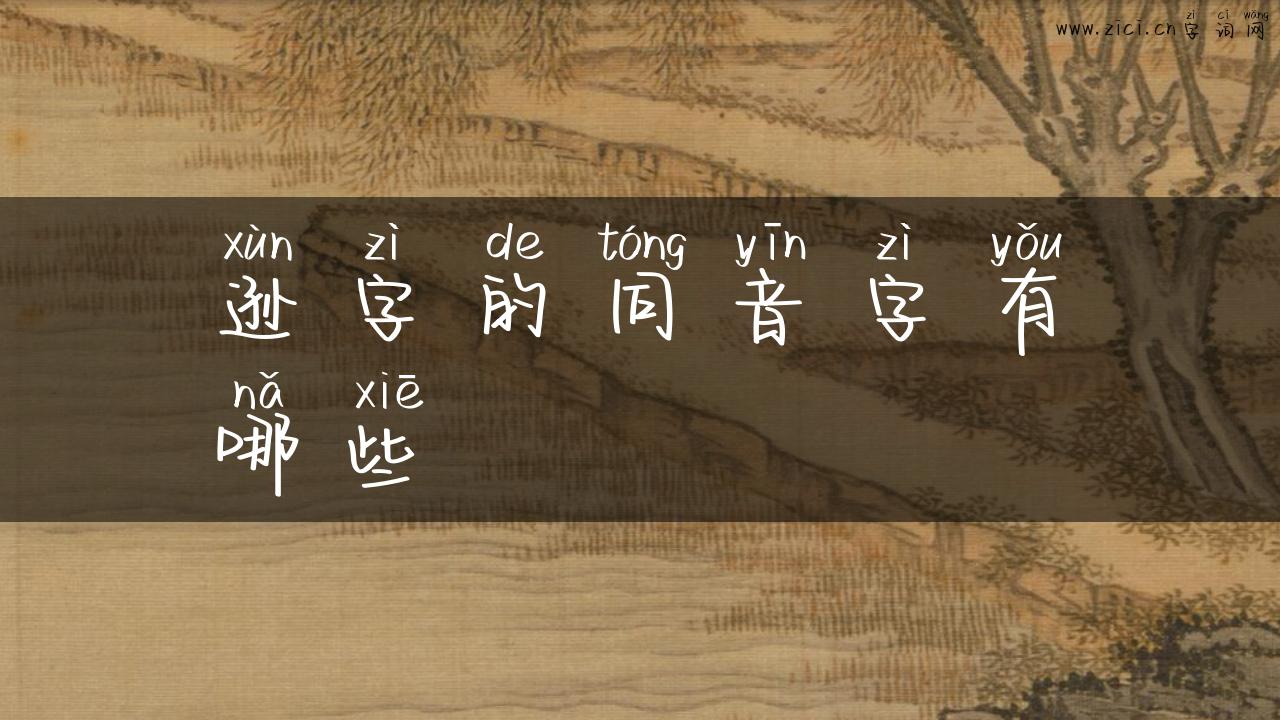 zì cí wǎng
www.zici.cn字词网
xùn zì de tóng yīn zì yǒu
逊字的同音字有
nǎ xiē
哪些